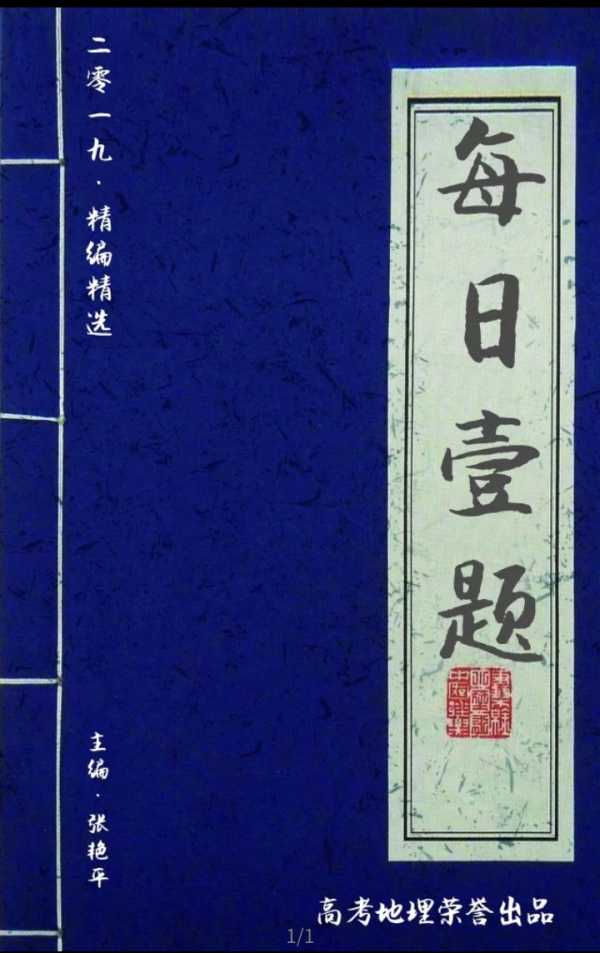 每日壹题
二零一九·精编精选
主编·张艳平
高考地理荣誉出品
1/1